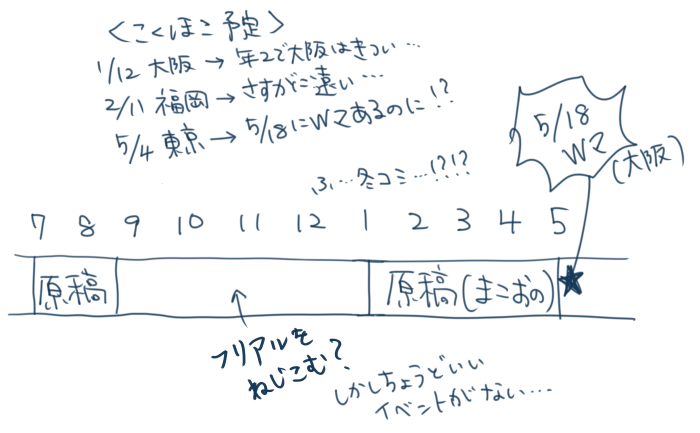 ＜こくほこ予定＞
1/12 大阪 → 年2で大阪はきつい…
2/11 福岡 → さすがに遠い…
5/4 東京 → 5/18にWマあるのに!?
5/18
Wマ
(大阪)
ふ…冬コミ…!?!?
7 8 9 10 11 12 1 2 3 4 5
原稿 原稿(まこおの) ★
フリアルを
ねじこむ？
しかしちょうどいい
イベントがない…